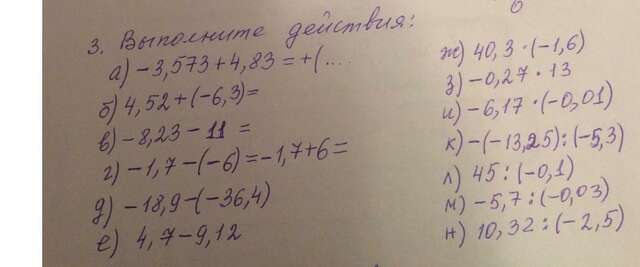 3. Выполните действия:
а) -3,573+4,83=+(....
б) 4,52+(-6,3)=
в) -8,23-11 =
г) -1,7-(-6)=-1,7+6=
д) -18,9-(-36,4)
е) 4,7-9,12
ж) 40,3·(-1,6)
з) -0,27·13
и) -6,17·(-0,01)
к) -(-13,25):(-5,3)
л) 45:(-0,1)
м) -5,7:(-0,03)
н) 10,32:(-2,5)